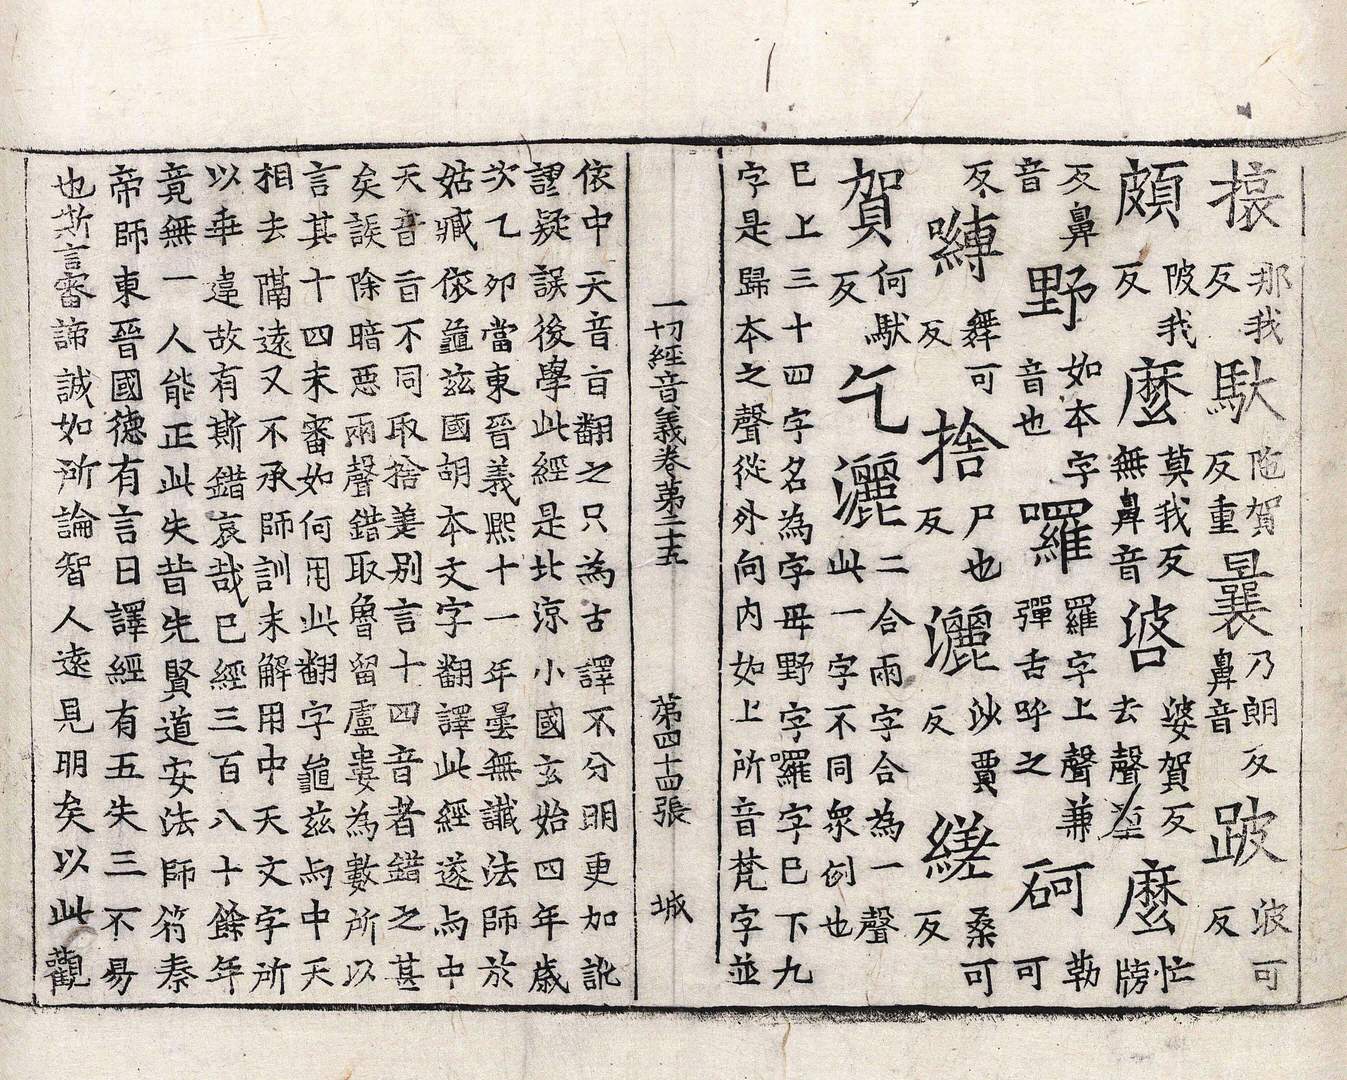 那我反馱陀賀反重曩乃朗反鼻音跛波可反
頗陂我反麼莫我反無鼻音碆婆賀反去聲重麼忙牓
反鼻音野如本字音也囉羅字上聲兼彈舌呼之砢勒可
反嚩舞可反捨尸也反灑沙賈反縒桑可反
賀何馱反乞灑二合兩字合為一聲此一字不同衆例也
已上三十四字名為字母野字囉字已下九
字是歸本之聲從外向内如上所音梵字並
一切經音義卷第二十五 第四十四張 城
依中天音旨翻之只為古譯不分明更加訛
謬疑誤後學此經是北涼小國玄始四年歲
次乙卯當東晉義熙十一年曇無讖法師於
姑臧依龜茲國胡本文字翻譯此經遂与中
天音旨不同取捨差別言十四音者錯之甚
矣誤除暗惡兩聲錯取魯留盧婁為數所以
言其十四未審如何用此翻字龜茲与中天
相去隔遠又不承師訓未解用中天文字所
以乖違故有斯錯哀哉已經三百八十餘年
竟無一人能正此失昔先賢道安法師苻秦
帝師東晉國德有言曰譯經有五失三不易
也斯言審諦誠如所論智人遠見明矣以此觀